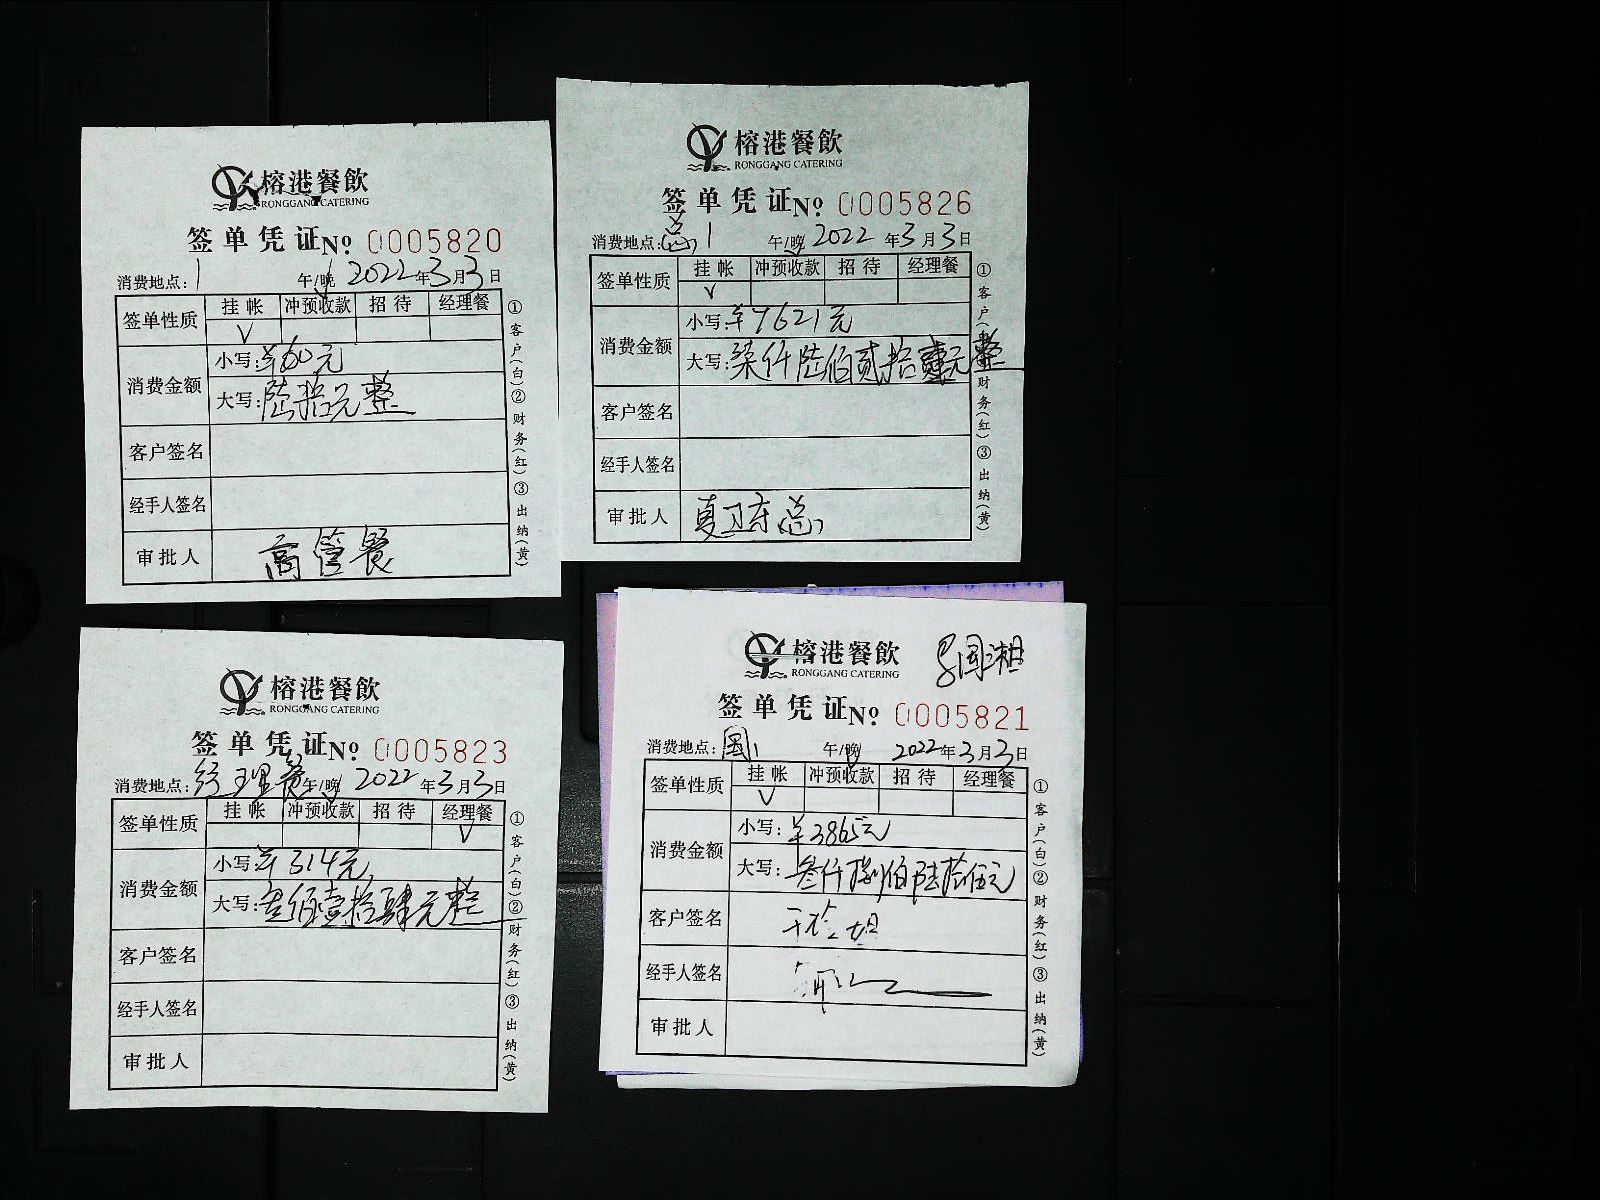 榕港餐飲
RONGGANG CATERING
签单凭证№ 0005820
消费地点: 1 午/晚 2022年3月3日
签单性质 挂帐 冲预收款 招待 经理餐
√
消费金额
小写:¥60元
大写:陆拾元整
客户签名
经手人签名
审批人 高管餐
①客户(白)②财务(红)③出纳(黄)
榕港餐飲
RONGGANG CATERING
签单凭证№ 0005826
消费地点:总1 午/晚 2022年3月3日
签单性质 挂帐 冲预收款 招待 经理餐
√
消费金额
小写:¥7621元
大写:柒仟陆佰贰拾壹元整
客户签名
经手人签名
审批人 夏卫东总
①客户(白)②财务(红)③出纳(黄)
榕港餐飲
RONGGANG CATERING
签单凭证№ 0005823
消费地点:经理餐 午/晚 2022年3月3日
签单性质 挂帐 冲预收款 招待 经理餐
√
消费金额
小写:¥314元
大写:叁佰壹拾肆元整
客户签名
经手人签名
审批人
①客户(白)②财务(红)③出纳(黄)
榕港餐飲
RONGGANG CATERING
签单凭证№ 0005821
消费地点: 午/晚 2022年3月3日
签单性质 挂帐 冲预收款 招待 经理餐
√
消费金额
小写:¥3865元
大写:叁仟捌佰陆拾伍元
客户签名
经手人签名
审批人
①客户(白)②财务(红)③出纳(黄)